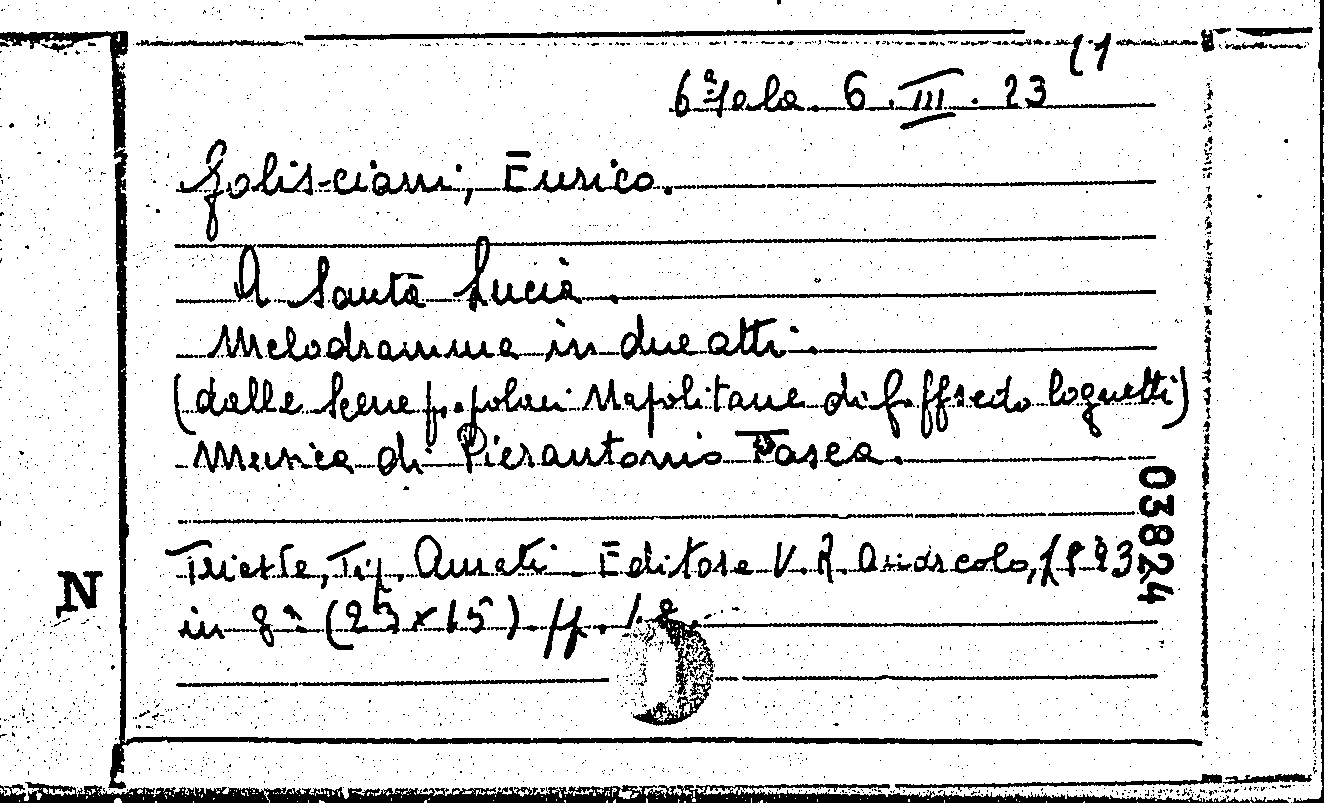 6ª Sala. 6. III. 23 (1
Golisciani, Enrico.
A Santa Lucia.
Melodramma in due atti.
(dalle Scene popolari Napolitane di Goffredo Cognetti)
Musica di Pierantonio Tasca.
Trieste, Tip. Amati. Editore V. R. 1893
in 8º (23 x 15). pp. 18.
03824
N